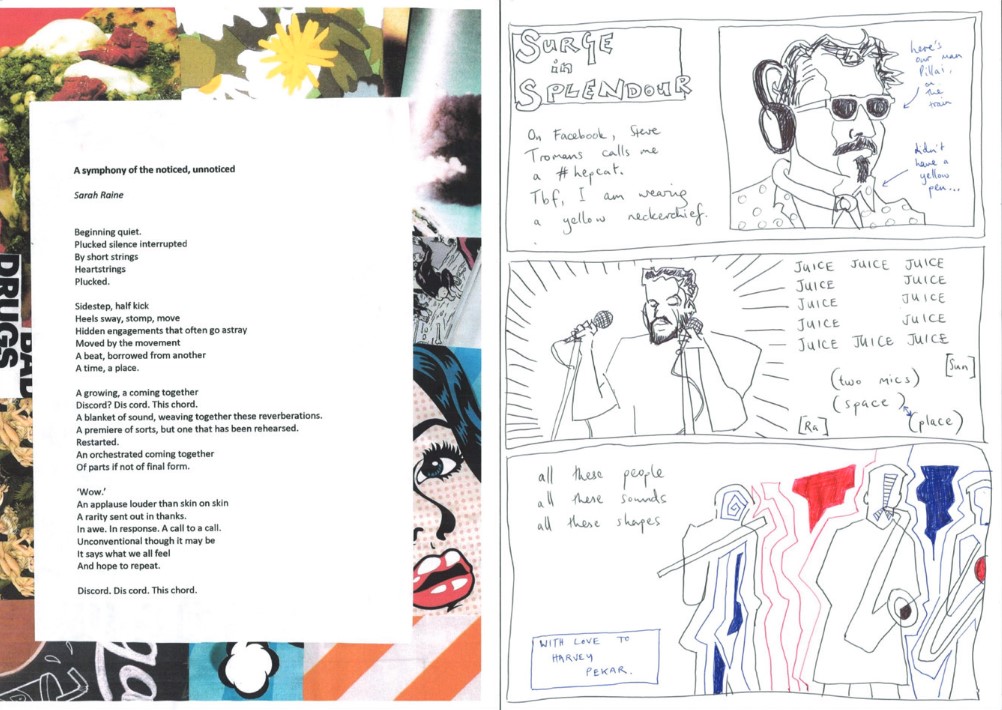 A symphony of the noticed, unnoticed
Sarah Raine
Beginning quiet.
Plucked silence interrupted
By short strings
Heartstrings
Plucked.
Sidestep, half kick
Heels sway, stomp, move
Hidden engagements that often go astray
Moved by the movement
A beat, borrowed from another
A time, a place.
A growing, a coming together
Discord? Dis cord. This chord.
A blanket of sound, weaving together these reverberations.
A premiere of sorts, but one that has been rehearsed.
Restarted.
An orchestrated coming together
Of parts if not of final form.
'Wow.'
An applause louder than skin on skin
A rarity sent out in thanks.
In awe. In response. A call to a call.
Unconventional though it may be
It says what we all feel
And hope to repeat.
Discord. Dis cord. This chord.
DRUGS
BAD
SURGE
in
SPLENDOUR
On Facebook, Steve
Tromans calls me
a #hepcat.
Tbf, I am wearing
a yellow neckerchief.
here's
our man
Pillai,
on
the
train
didn't
have a
yellow
pen...
JUICE JUICE JUICE
JUICE JUICE
JUICE JUICE
JUICE JUICE
JUICE JUICE JUICE
[Sun]
(two mics)
(space)
[Ra]
(place)
all these people
all these sounds
all these shapes
WITH LOVE TO
HARVEY
PEKAR.